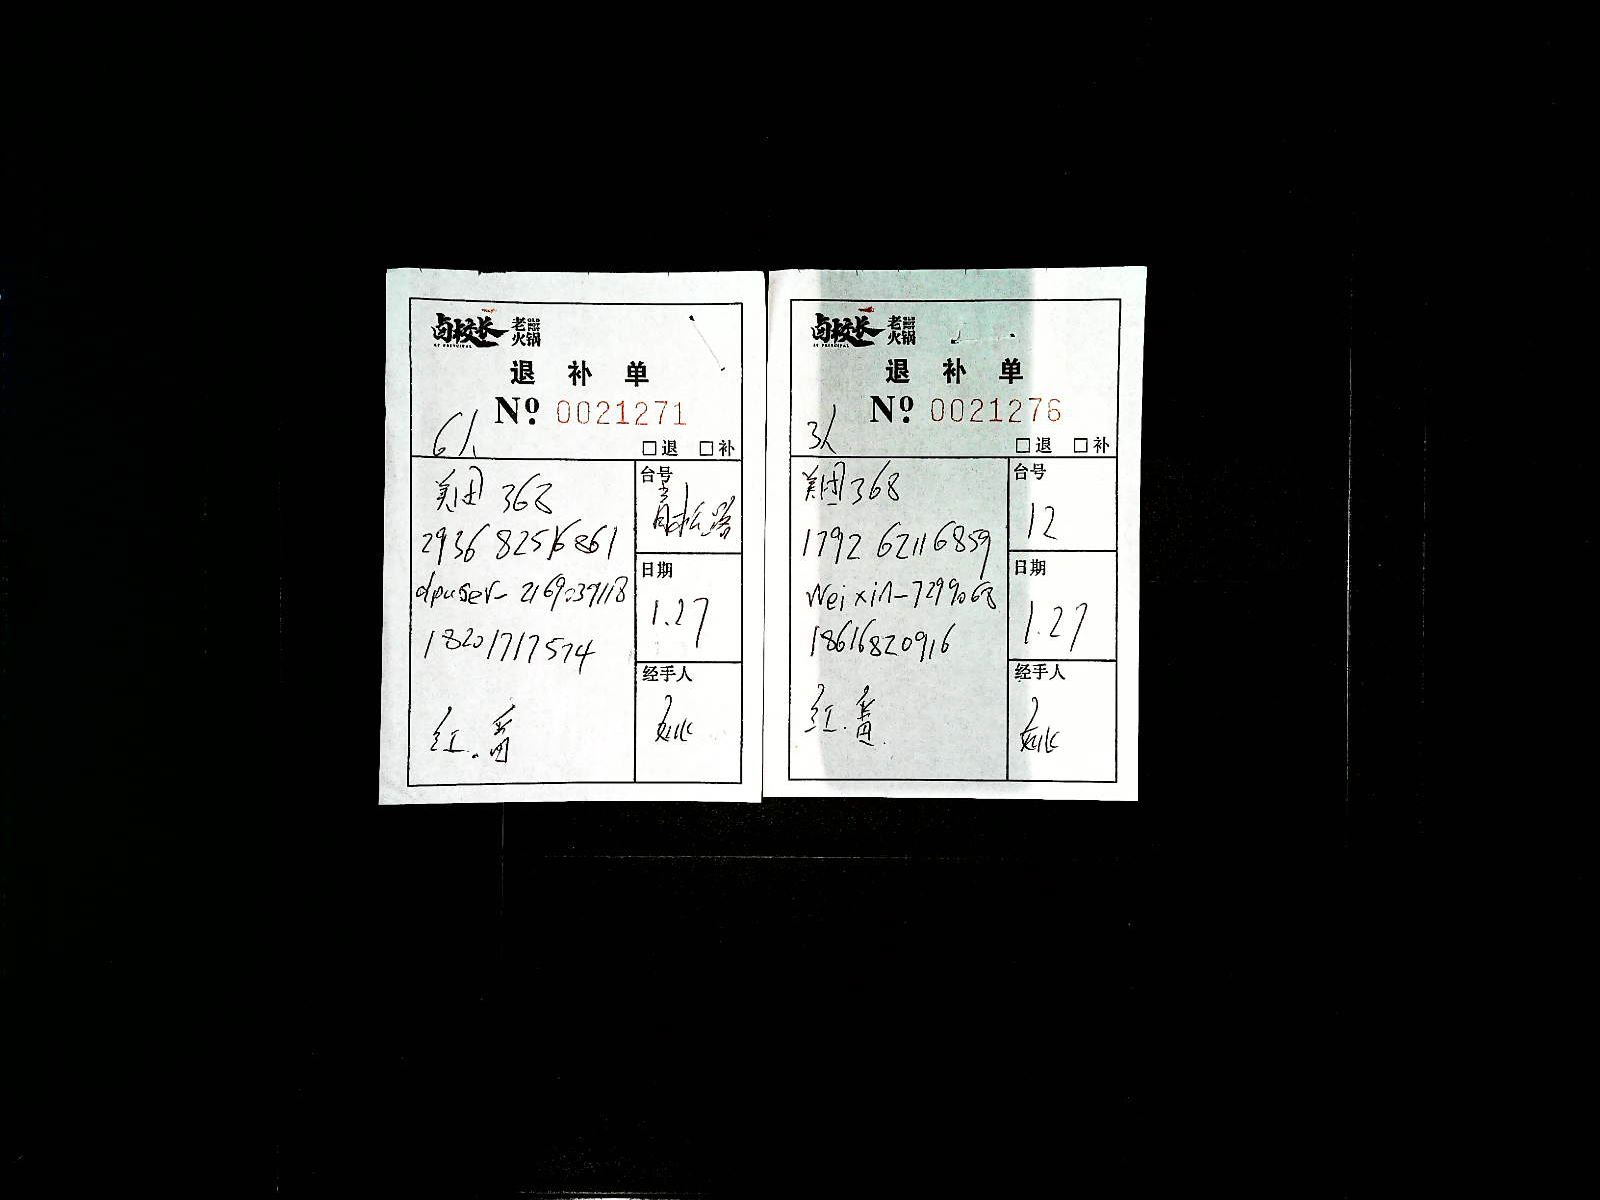 卤校长 老火锅
退 补 单
Nº. 0021271
6人
□退 □补
美团 368
2936 8251 6861
dpuser-2169037118
18201717574
红.番
台号
青松路
日期
1.27
经手人
卤校长 老火锅
退 补 单
Nº. 0021276
3人
□退 □补
美团 368
1792 6211 6859
Weixin-7299068
18616820916
红.番
台号
12
日期
1.27
经手人